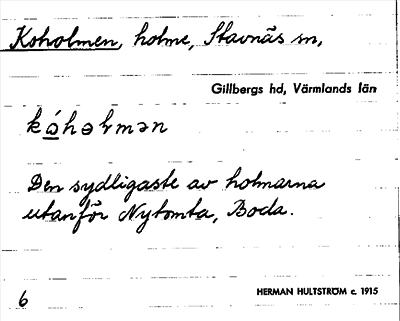 Koholmen, holme, Stavnäs sn,
Gillbergs hd, Värmlands län
kóhəlmən
Den sydligaste av holmarna
utanför Nytomta, Boda.
6
HERMAN HULTSTRÖM c. 1915